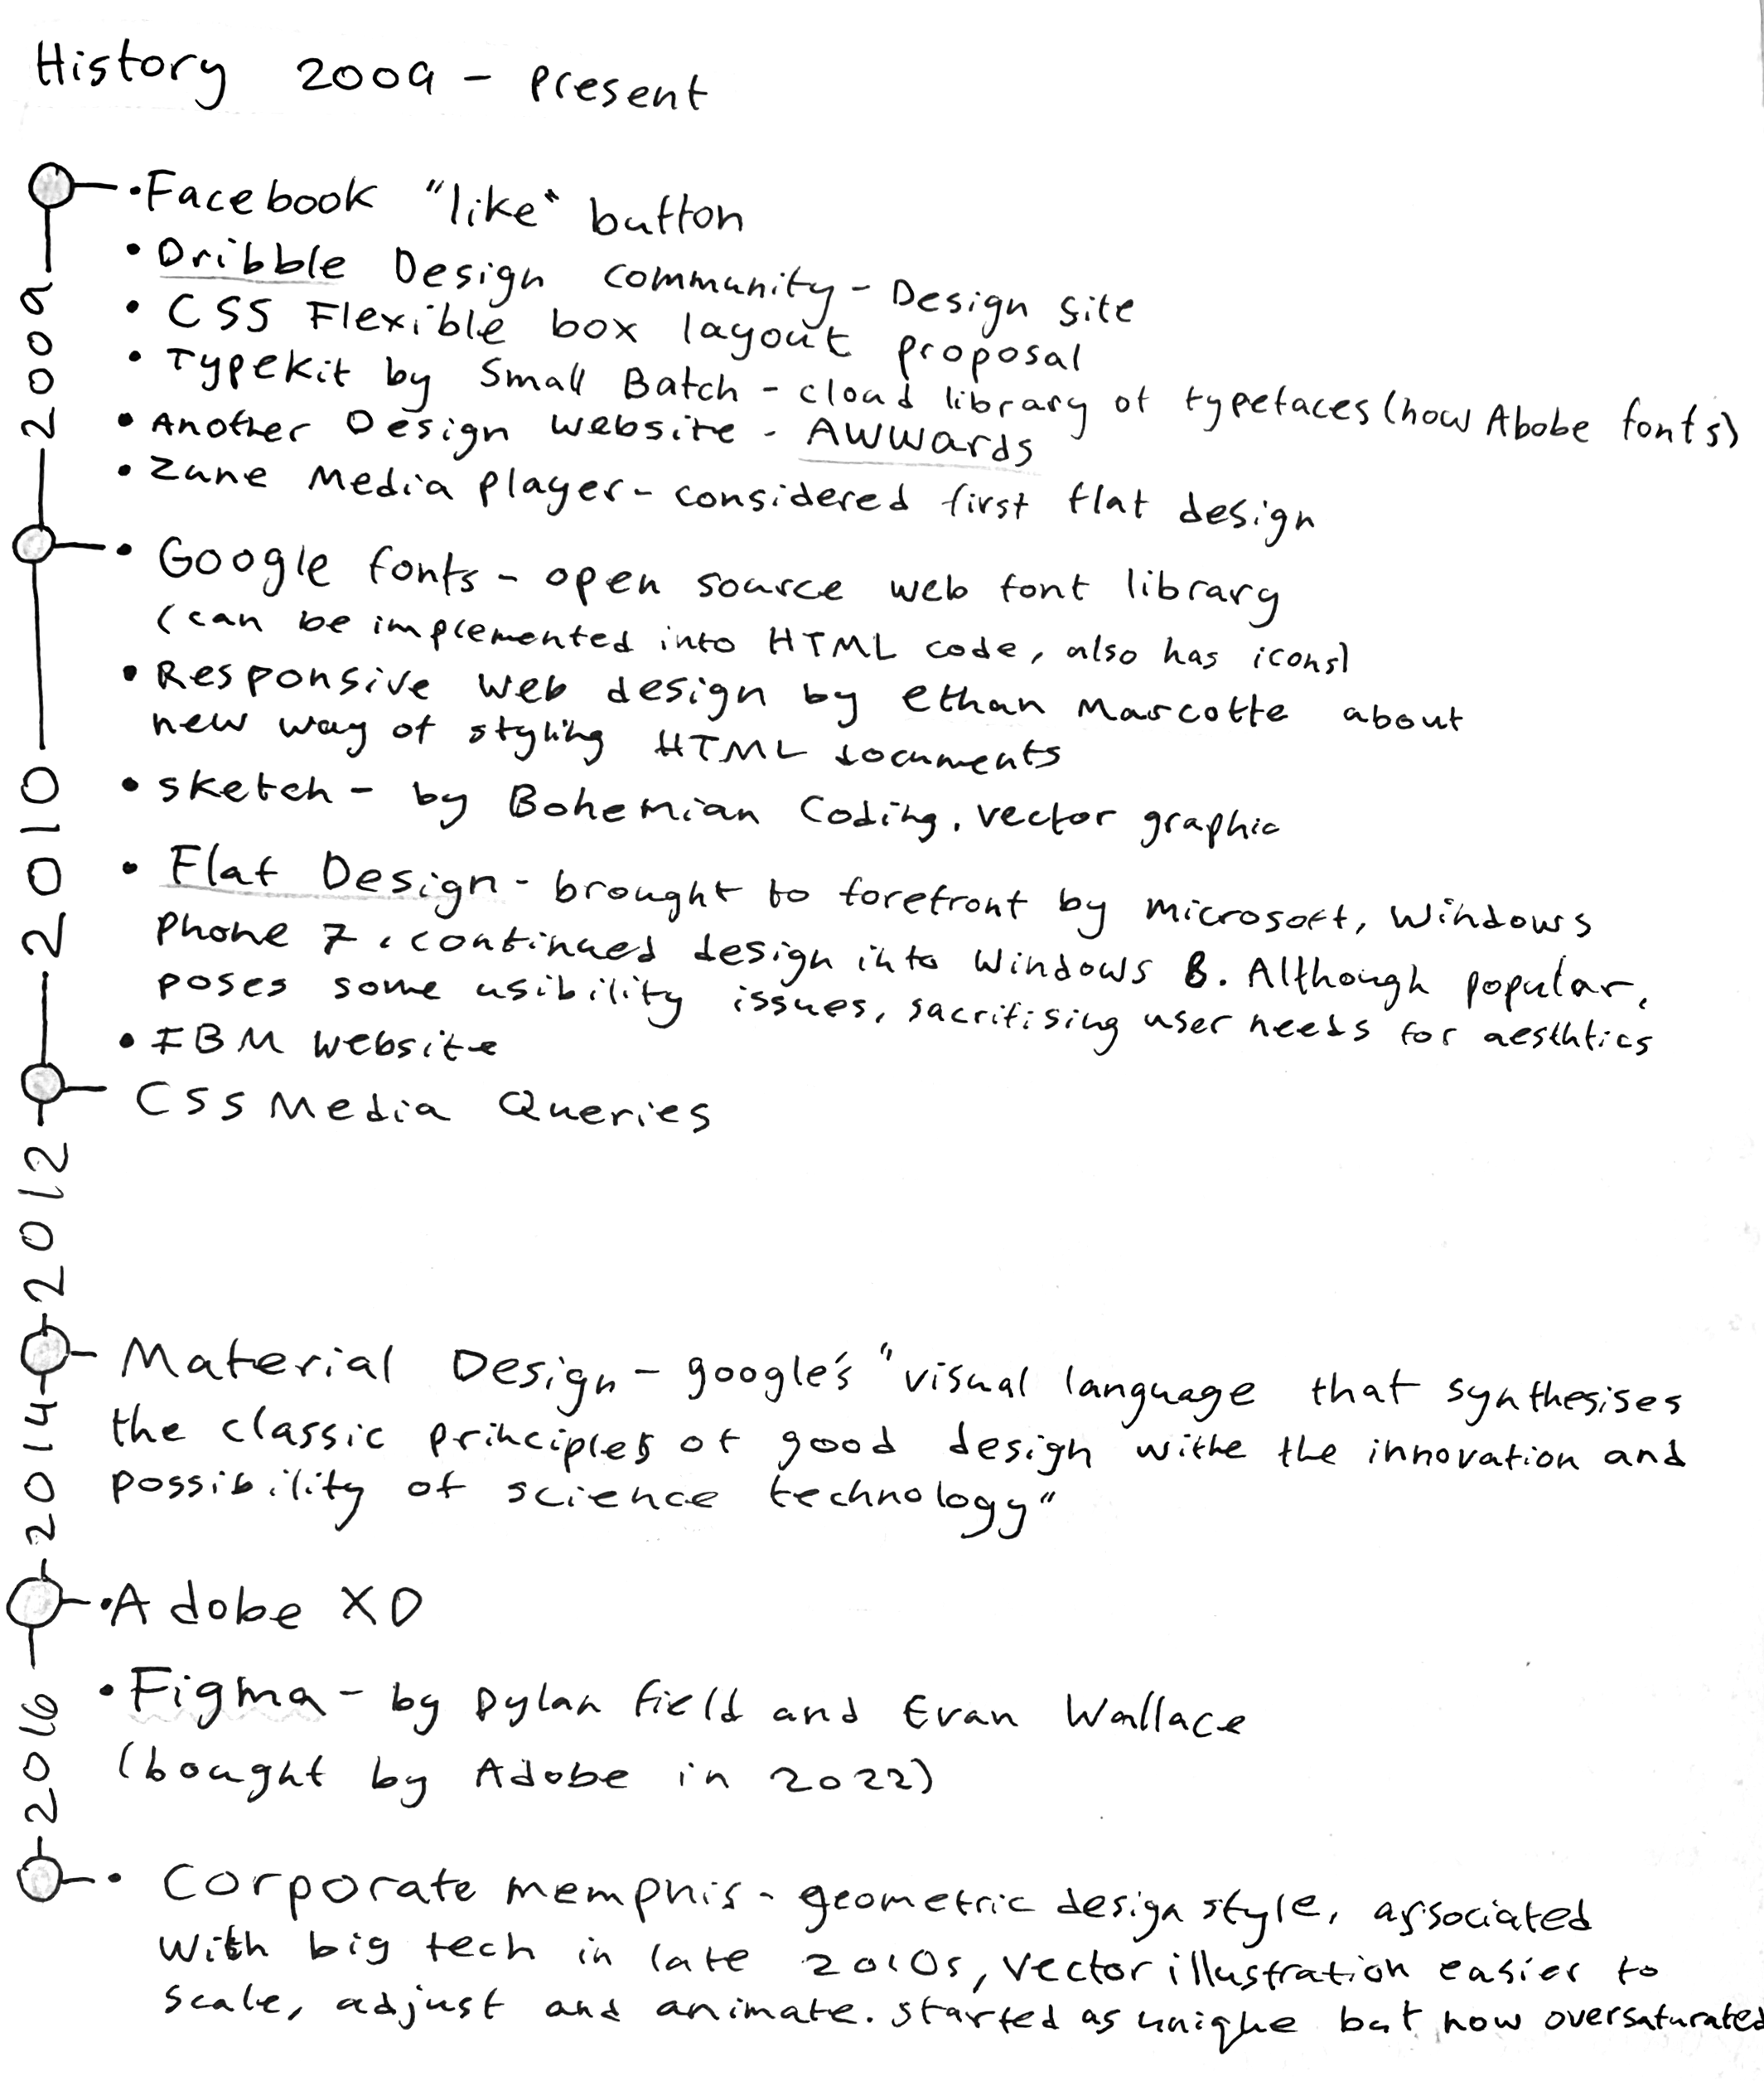 History 2009 - present
•Facebook "like" button
• Dribble Design community - Design site
• CSS Flexible box layout proposal
• Typekit by Small Batch - cloud library of typefaces (now Abobe fonts)
• Another Design website - AWWards
• Zune Media Player - considered first flat design
2009
• Google fonts - open source web font library
(can be implemented into HTML code, also has icons)
• Responsive web design by ethan Marcotte about
new way of styling HTML documents
• Sketch - by Bohemian Coding, vector graphic
• Flat Design - brought to forefront by microsoft, Windows
Phone 7, continued design into Windows 8. Although popular,
poses some usibility issues, sacrifising user needs for aesthtics
• IBM website
2010
CSS Media Queries
2012
Material Design - google's "visual language that synthesises
the classic principles of good design withe the innovation and
possibility of science technology"
2014
•Adobe XD
• Figma - by Dylan field and Evan Wallace
(bought by Adobe in 2022)
2016
• Corporate memphis - geometric design style, associated
with big tech in late 2010s, vector illustration easier to
scale, adjust and animate. started as unique but now oversaturated